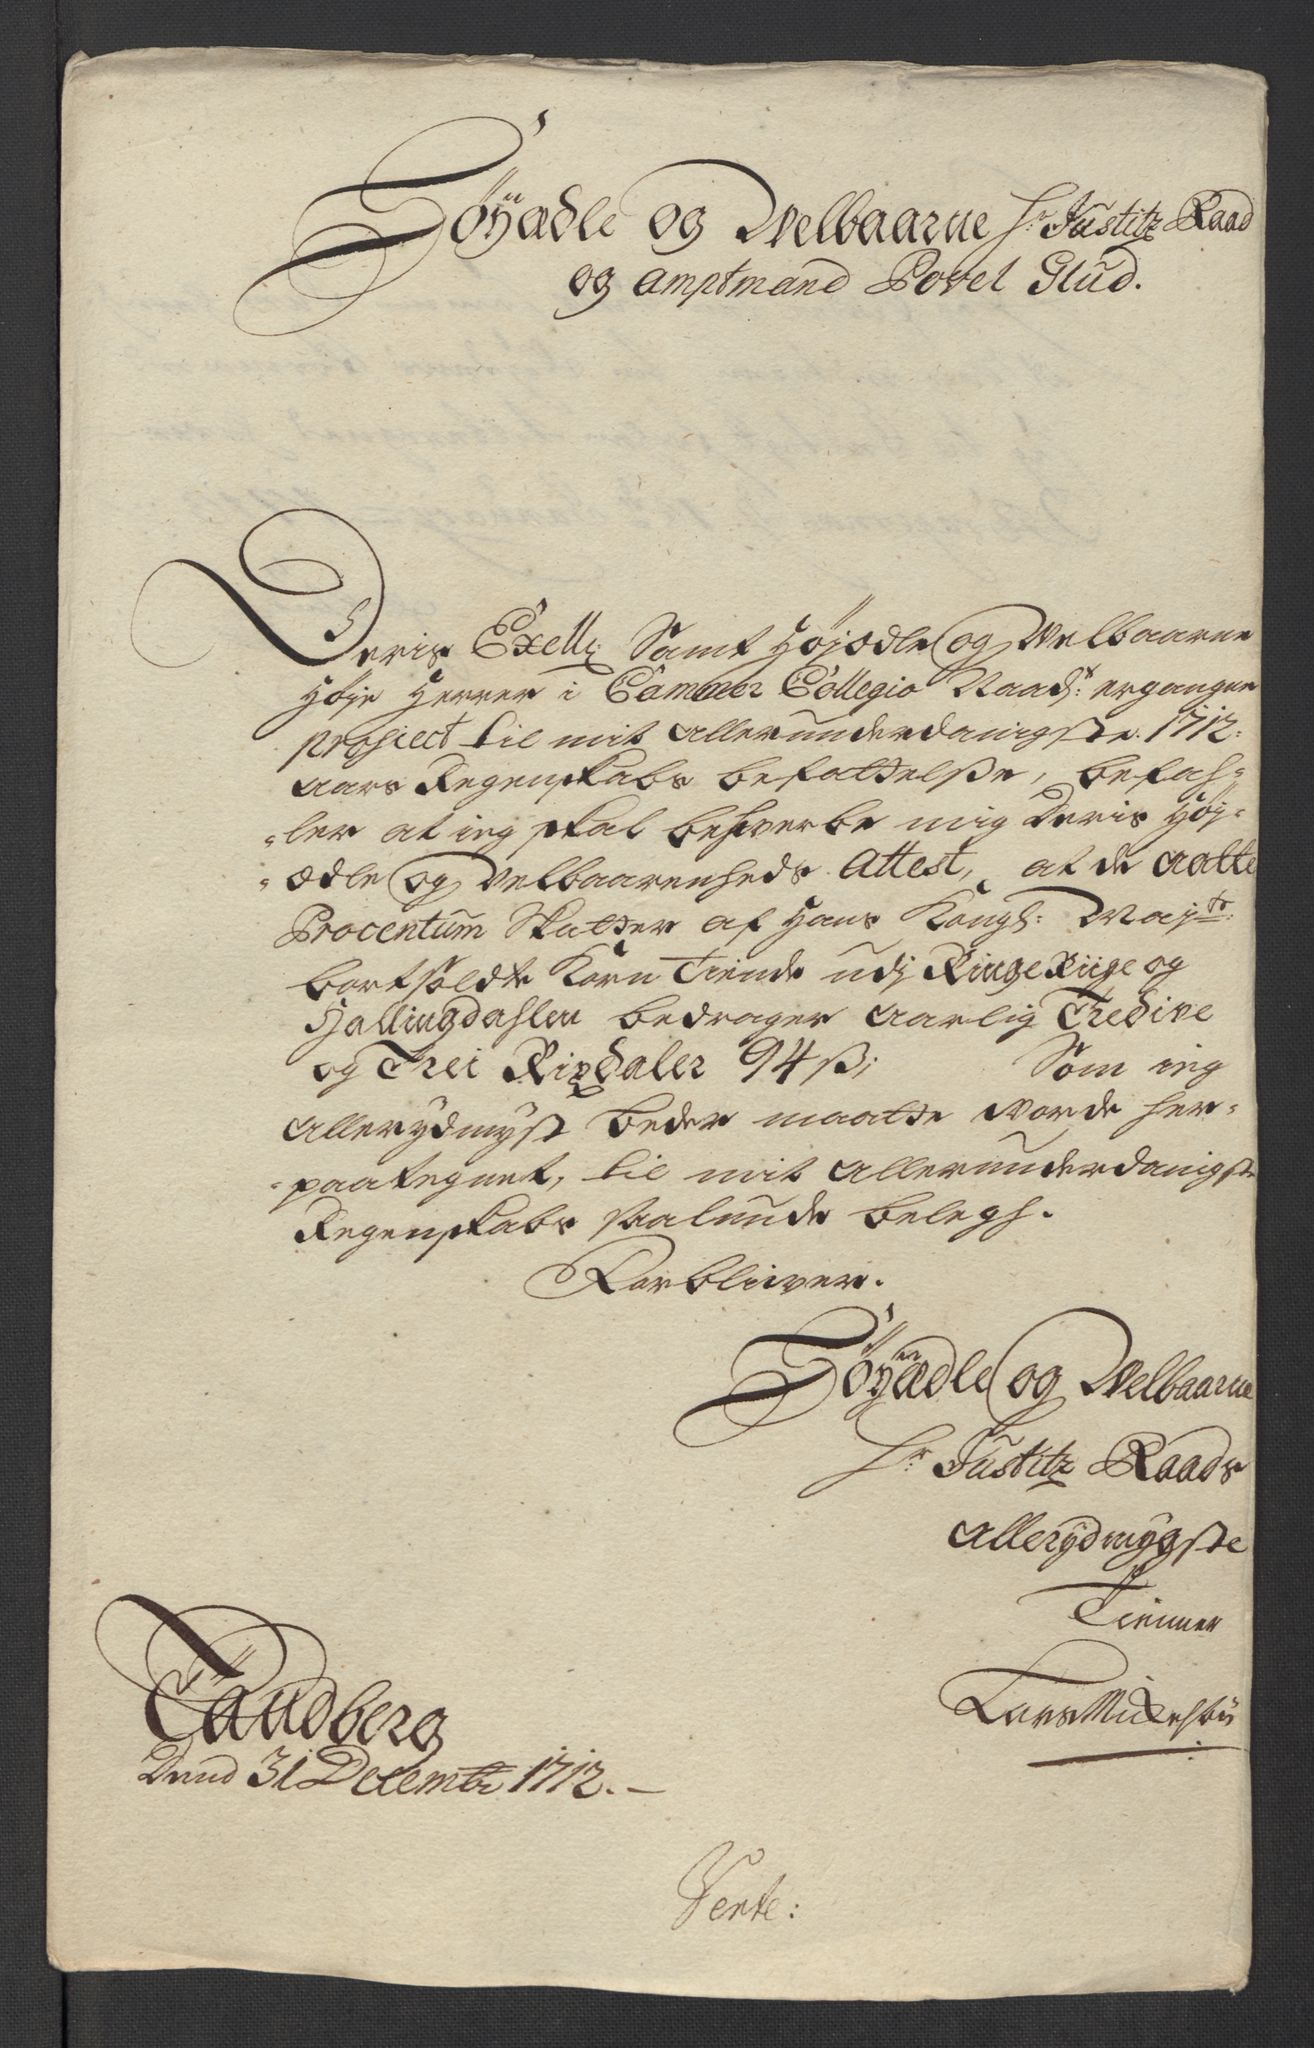 Høÿædle og Welbaarne Hr Justitz Raad
og amptmand Povel Glud.
Deris Exell: Samt Højædle og Velbaarne
Høje Herrer i Cammer Collegio Raads: ergangne
Prosiect til mit allerunderdanigste 1712:
aars Regenskabs befattelse, befah=
=ler at ieg skal behverbe mig Deris Høj=
=ædle og Velbaarenheds Attest, at de aatte
Procentum Skatter af Hans Kongl: Maÿts:
bortsoldte Korn Tiende udj RingeRiige og
Hallingdahlen bedrager aarlig Tredive
og Trei Rixdaler 94 ß; Som ieg
allerydmygst beder maatte vorde her=
=paategnet, til mit allerunderdanigste
Regenskabs saalunde belegh.
Forbliver.
Høÿædle og Welbaarne
Hr Justitz Raads
allerydmygste
Tienner
Lars
Tandberg
Dend 31 Decembr 1712.
Verte: